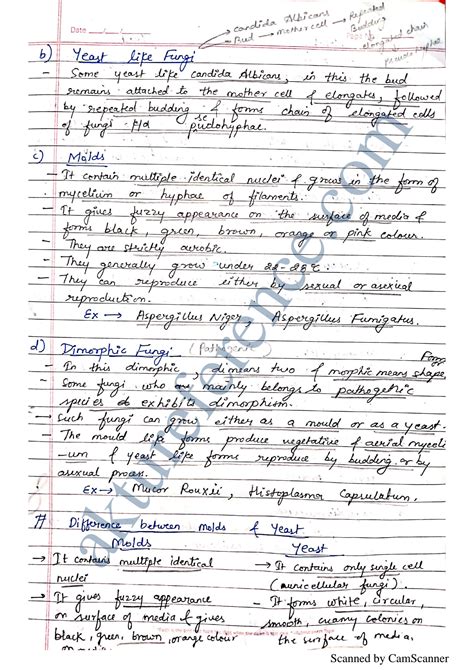 Date ___/___/___
→ Candida Albicans
→ Bud → mother cell → Repeated
Budding
elongated chain
pseudohyphae
b) Yeast like Fungi
- Some yeast like candida Albicans, in this the bud
remains attached to the mother cell & elongates, followed
by repeated budding & forms chain of elongated cells
of fungi k/a pseudohyphae.
c) Molds
- It contain multiple identical nuclei & grows in the form of
mycelium or hyphae of filaments.
- It gives fuzzy appearance on the surface of media &
forms black, green, brown, orange or pink colour.
- They are strictly aerobic.
- They generally grow under 22-28°C.
- They can reproduce either by sexual or asexual
reproduction.
Ex → Aspergillus Niger, Aspergillus Fumigatus.
d) Dimorphic Fungi (Pathogenic)
- In this dimorphic, di means two & morphic means shape, Form
- Some fungi who are mainly belongs to pathogenic
species & exhibits dimorphism.
- Such fungi can grow either as a mould or as a yeast.
- The mould like forms produce vegetative & aerial myceli
-um & yeast like forms reproduce by budding or by
asexual process.
Ex → Mucor Rouxii, Histoplasma Capsulatum.
# Difference between molds & Yeast
Molds Yeast
→ It contains multiple identical → It contains only single cell
nuclei (unicellular fungi).
→ It gives fuzzy appearance → It forms white, circular,
on surface of media & gives smooth, creamy colonies on
black, green, brown, orange colour the surface of media.
aktureference.com
Scanned by CamScanner